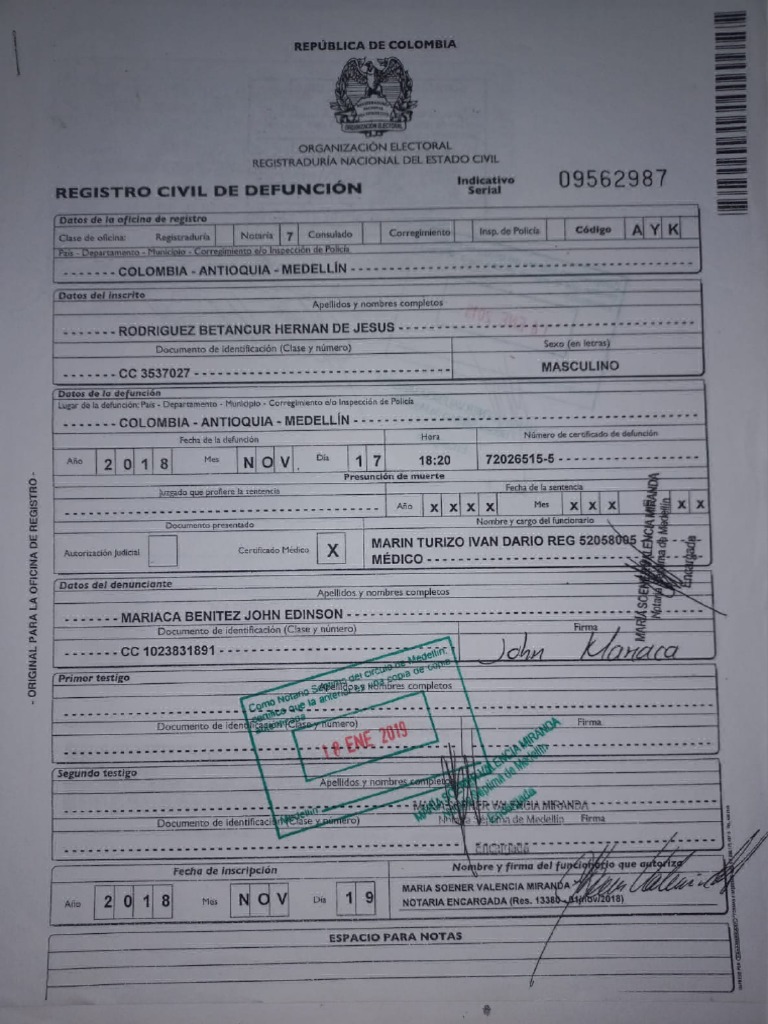 REPÚBLICA DE COLOMBIA
ORGANIZACIÓN ELECTORAL
ORGANIZACIÓN ELECTORAL
REGISTRADURÍA NACIONAL DEL ESTADO CIVIL
REGISTRO CIVIL DE DEFUNCIÓN
Indicativo Serial 09562987
Datos de la oficina de registro
Clase de oficina: Registraduría Notaría 7 Consulado Corregimiento Insp. de Policía Código A Y K
País - Departamento - Municipio - Corregimiento e/o Inspección de Policía
- - - - - - - COLOMBIA - ANTIOQUIA - MEDELLÍN - - - - - - -
Datos del inscrito
Apellidos y nombres completos
- - - - - - - RODRIGUEZ BETANCUR HERNAN DE JESUS - - - - - - -
Documento de identificación (Clase y número) Sexo (en letras)
- - - - - - - CC 3537027 - - - - - - - MASCULINO
Datos de la defunción
Lugar de la defunción: País - Departamento - Municipio - Corregimiento e/o Inspección de Policía
- - - - - - - COLOMBIA - ANTIOQUIA - MEDELLÍN - - - - - - -
Fecha de la defunción Hora Número de certificado de defunción
Año 2 0 1 8 Mes N O V Día 1 7 18:20 72026515-5 - - - - - - -
Presunción de muerte
Juzgado que profiere la sentencia Fecha de la sentencia
Año X X X X Mes X X X X X
Documento presentado Nombre y cargo del funcionario
Autorización Judicial Certificado Médico X MARIN TURIZO IVAN DARIO REG 52058005 - -
MÉDICO - - - - - - -
MARIA SOENER VALENCIA MIRANDA
Notaria Séptima de Medellín
Encargada
Datos del denunciante
Apellidos y nombres completos
- - - - - - - MARIACA BENITEZ JOHN EDINSON - - - - - - -
Documento de identificación (Clase y número) Firma
- - - - - - - CC 1023831891 - - - - - - - John Mariaca
Primer testigo
Apellidos y nombres completos
Documento de identificación (Clase y número) Firma
Como Notario Séptimo del círculo de Medellín,
que la anterior es una copia de copia
18 ENE 2019
Medellín
Segundo testigo
Apellidos y nombres completos
MARIA SOENER VALENCIA MIRANDA
Notaria Séptima de Medellín
Encargada
MARIA SOENER VALENCIA MIRANDA
Documento de identificación (Clase y número) Notaria Séptima de Medellín Firma
Encargada
Fecha de inscripción Nombre y firma del funcionario que autoriza
Año 2 0 1 8 Mes N O V Día 1 9 MARIA SOENER VALENCIA MIRANDA
NOTARIA ENCARGADA (Res. 13380 /nov/2018)
ESPACIO PARA NOTAS
- ORIGINAL PARA LA OFICINA DE REGISTRO -